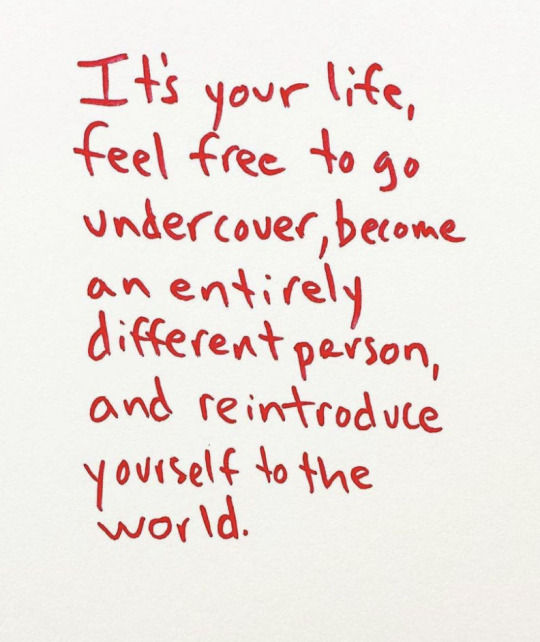 It's your life,
feel free to go
undercover, become
an entirely
different person,
and reintroduce
yourself to the
world.